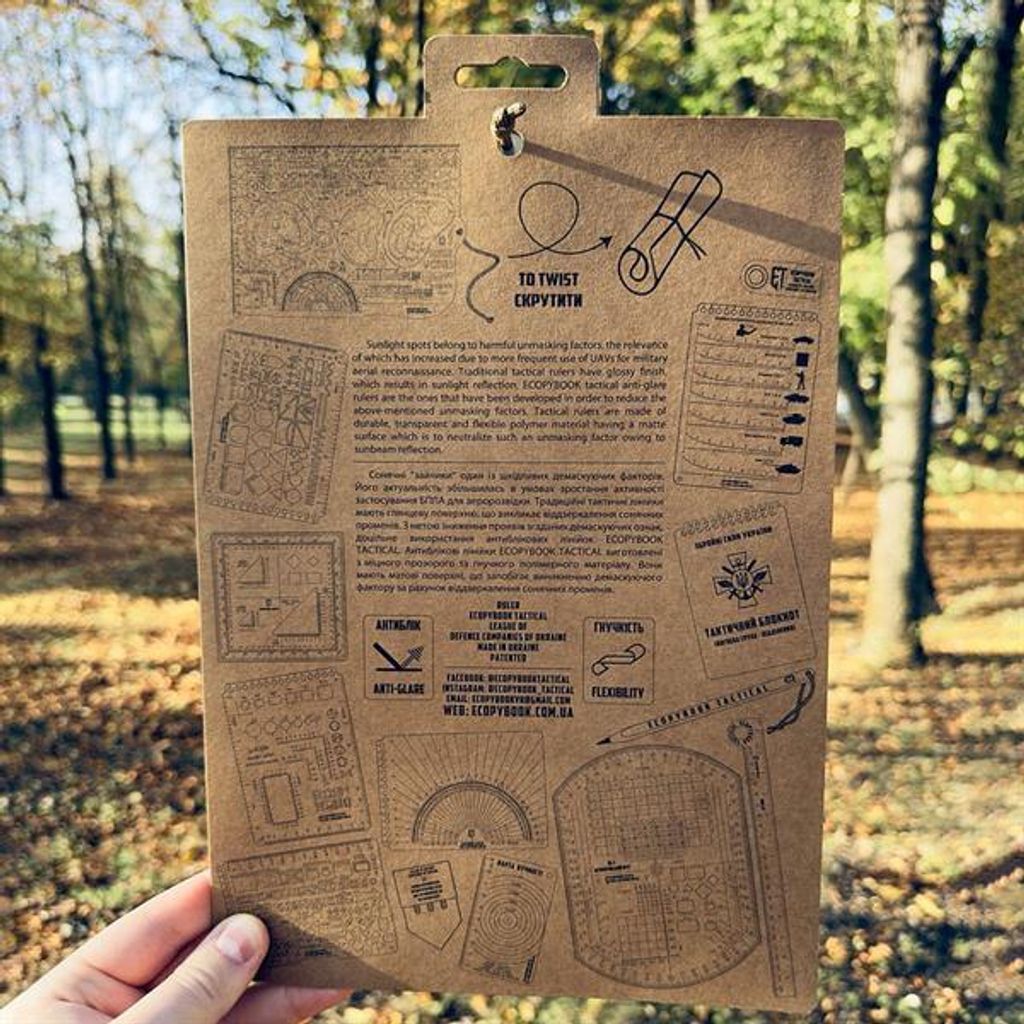 TO TWIST
СКРУТИТИ
ET
Sunlight spots belong to harmful unmasking factors, the relevance
of which has increased due to more frequent use of UAVs for military
aerial reconnaissance. Traditional tactical rulers have glossy finish,
which results in sunlight reflection. ECOPYBOOK tactical anti-glare
rulers are the ones that have been developed in order to reduce the
above-mentioned unmasking factors. Tactical rulers are made of
durable, transparent and flexible polymer material having a matte
surface which is to neutralize such an unmasking factor owing to
sunbeam reflection.
Сонячні "зайчики" один із шкідливих демаскуючих факторів.
Його актуальність збільшилась в умовах зростання активності
застосування БПЛА для аеророзвідки. Традиційні тактичні лінійки
мають глянцеву поверхню, що викликає віддзеркалення сонячних
променів. З метою зниження проявів згаданих демаскуючих ознак,
доцільне використання антиблікових лінійок ECOPYBOOK
TACTICAL. Антиблікові лінійки ECOPYBOOK TACTICAL виготовлені
з міцного прозорого та гнучкого полімерного матеріалу. Вони
мають матові поверхні, що запобігає виникненню демаскуючого
фактору за рахунок віддзеркалення сонячних променів.
ЗБРОЙНІ СИЛИ УКРАЇНИ
ТАКТИЧНИЙ БЛОКНОТ
АНТИБЛІК
ANTI-GLARE
RULER
ECOPYBOOK TACTICAL
LEAGUE OF
DEFENCE COMPANIES OF UKRAINE
MADE IN UKRAINE
PATENTED
FACEBOOK: @ECOPYBOOKTACTICAL
INSTAGRAM: @ECOPYBOOK_TACTICAL
EMAIL: ECOPYBOOKVR@GMAIL.COM
WEB: ECOPYBOOK.COM.UA
ГНУЧКІСТЬ
FLEXIBILITY
ECOPYBOOK TACTICAL